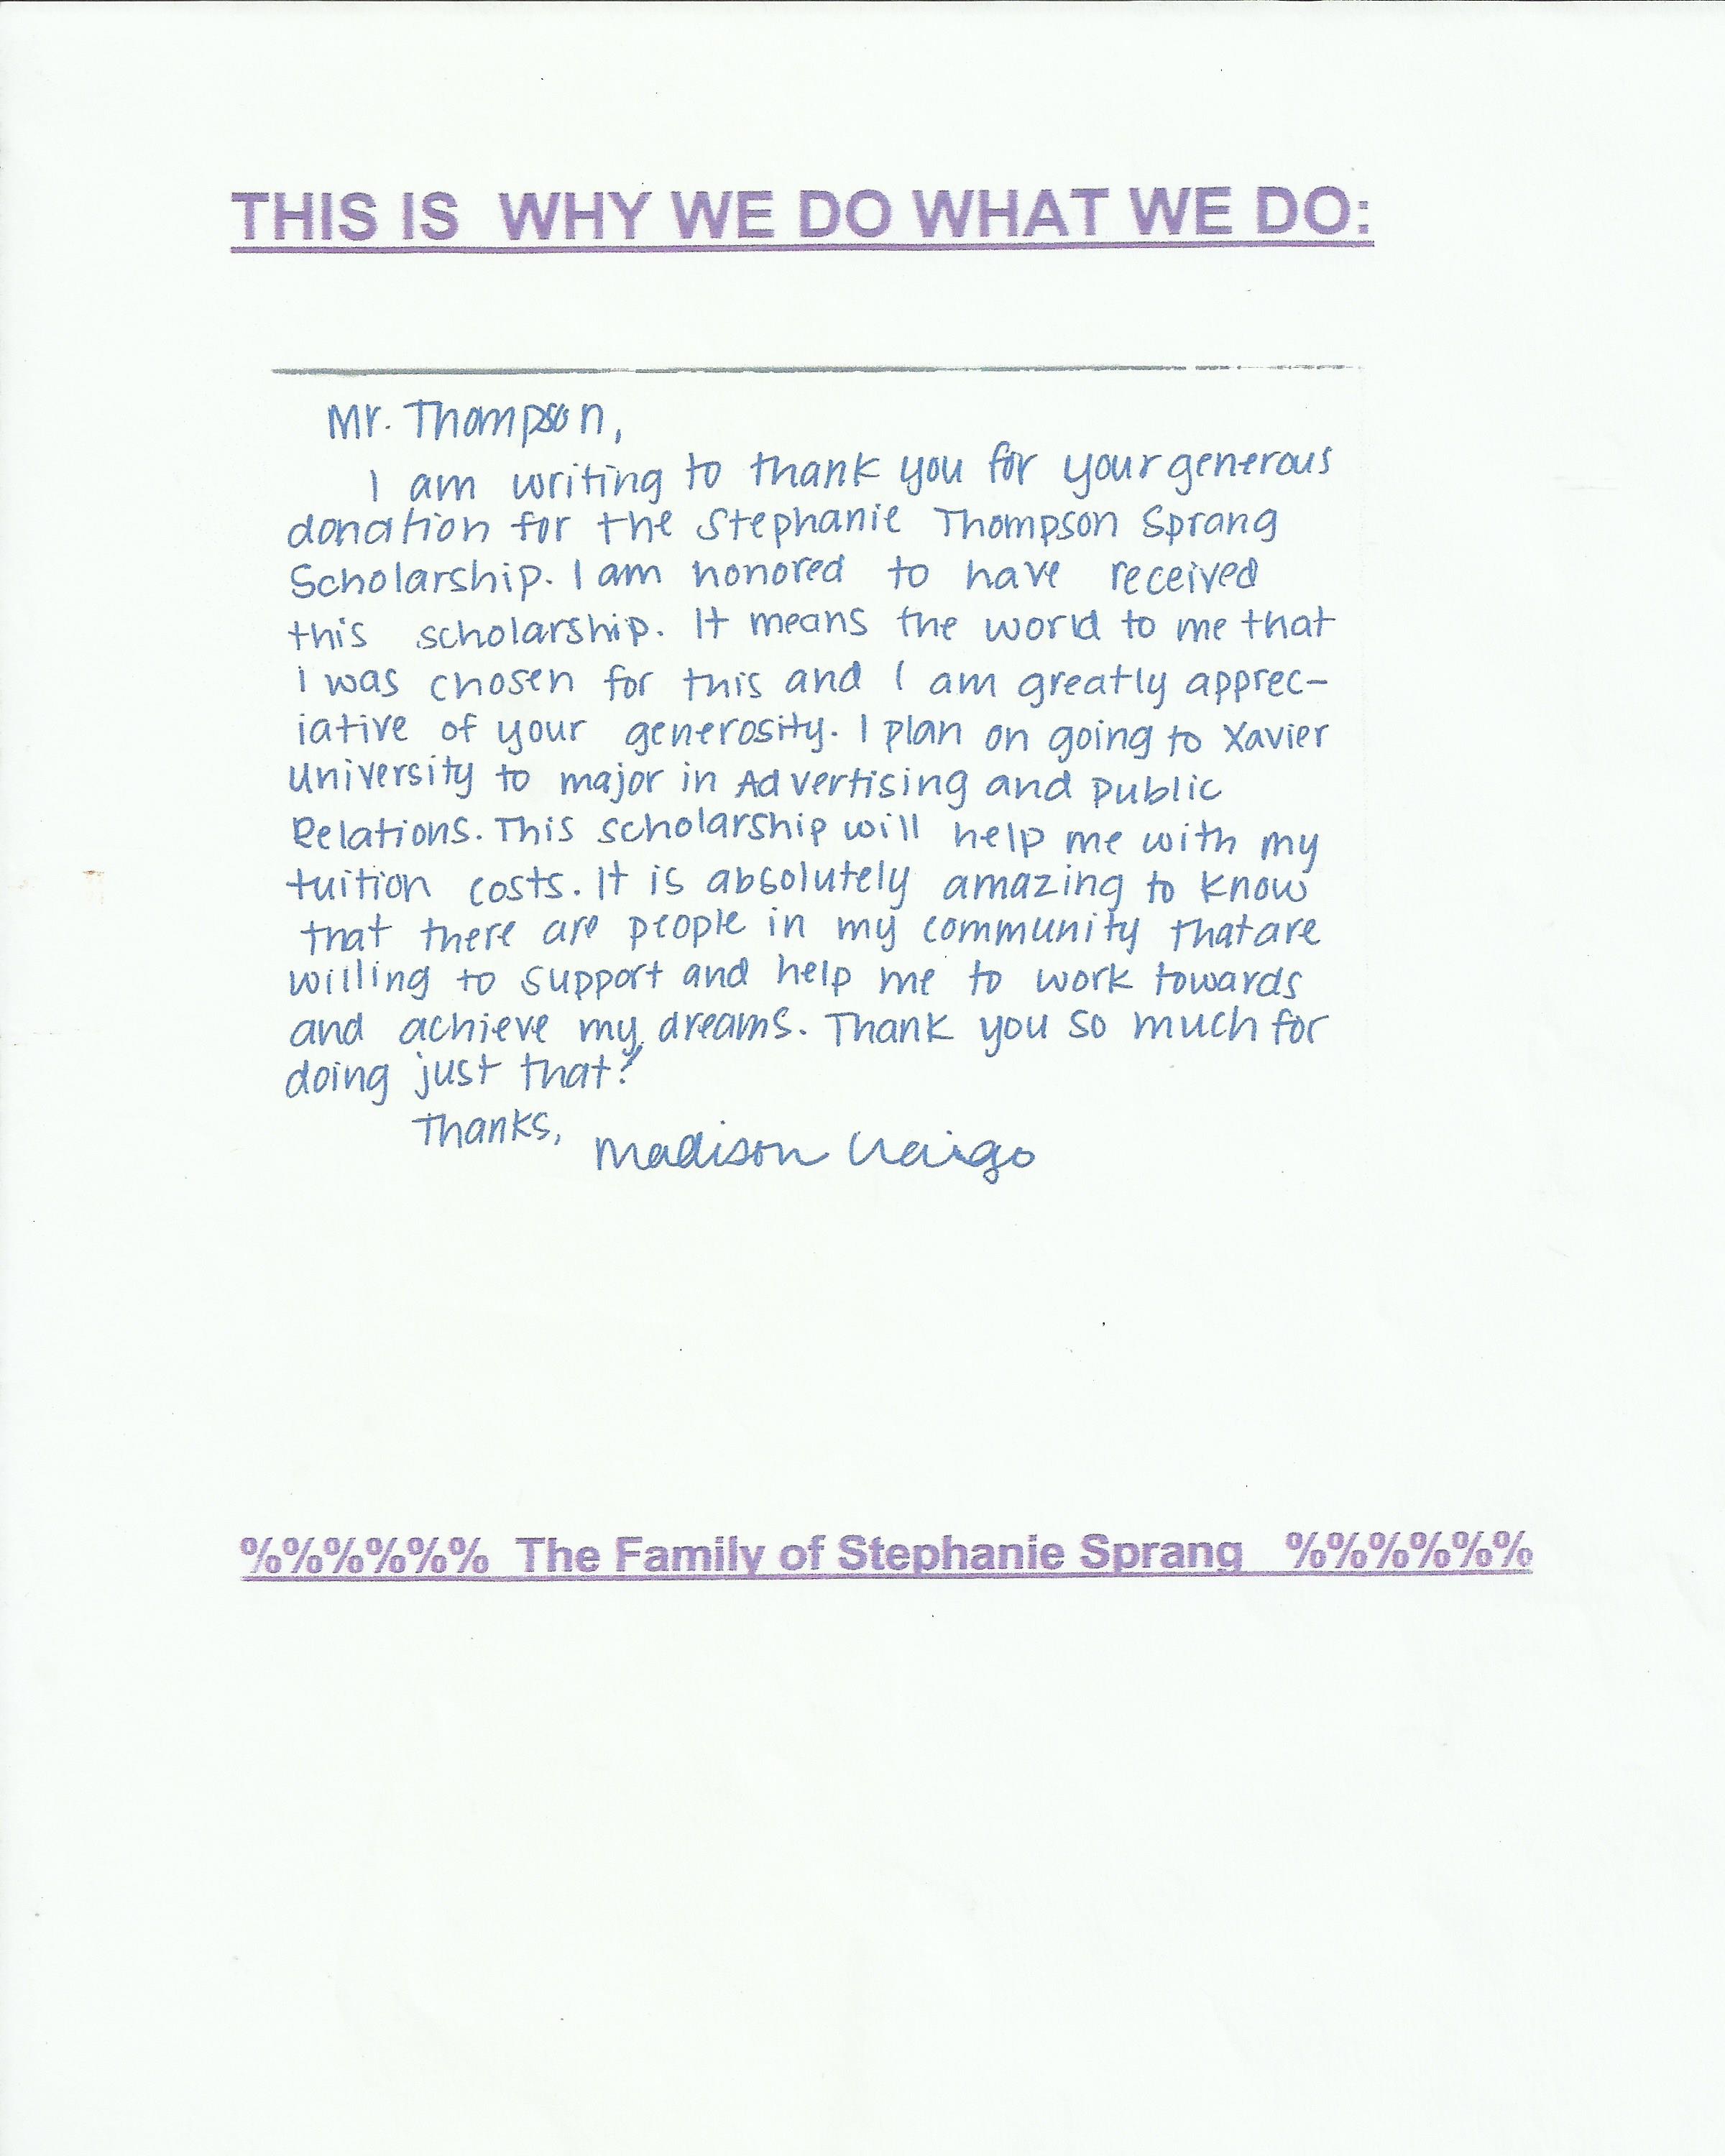 THIS IS WHY WE DO WHAT WE DO:
Mr. Thompson,
I am writing to thank you for your generous
donation for the Stephanie Thompson Sprang
Scholarship. I am honored to have received
this scholarship. It means the world to me that
I was chosen for this and I am greatly apprec-
iative of your generosity. I plan on going to Xavier
University to major in Advertising and Public
Relations. This scholarship will help me with my
tuition costs. It is absolutely amazing to know
that there are people in my community that are
willing to support and help me to work towards
and achieve my dreams. Thank you so much for
doing just that!
Thanks, Madison
%%%%%% The Family of Stephanie Sprang %%%%%%